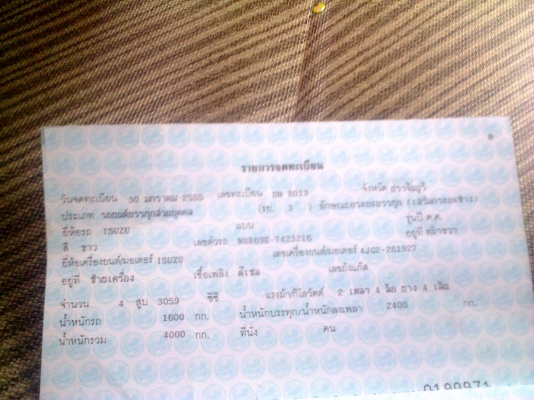 รายการจดทะเบียน
วันจดทะเบียน 30 มกราคม 2555 เลขทะเบียน 8013 จังหวัด ปราจีนบุรี
ประเภท รถยนต์บรรทุกส่วนบุคคล (รย. 3 ) ลักษณะ
ยี่ห้อรถ ISUZU แบบ รุ่นปี ค.ศ.
สี ขาว เลขตัวรถ อยู่ที่
ยี่ห้อเครื่องยนต์/มอเตอร์ ISUZU เลขเครื่องยนต์/มอเตอร์ 4JG2-261927
อยู่ที่ ซ้ายเครื่อง เชื้อเพลิง ดีเซล เลขถังแก๊ส
จำนวน 4 สูบ 3059 ซีซี แรงม้า/กิโลวัตต์ 2 เพลา 4 ล้อ ยาง 4 เส้น
น้ำหนักรถ 1600 กก. น้ำหนักบรรทุก/น้ำหนักลงเพลา 2400 กก.
น้ำหนักรวม 4000 กก. ที่นั่ง คน